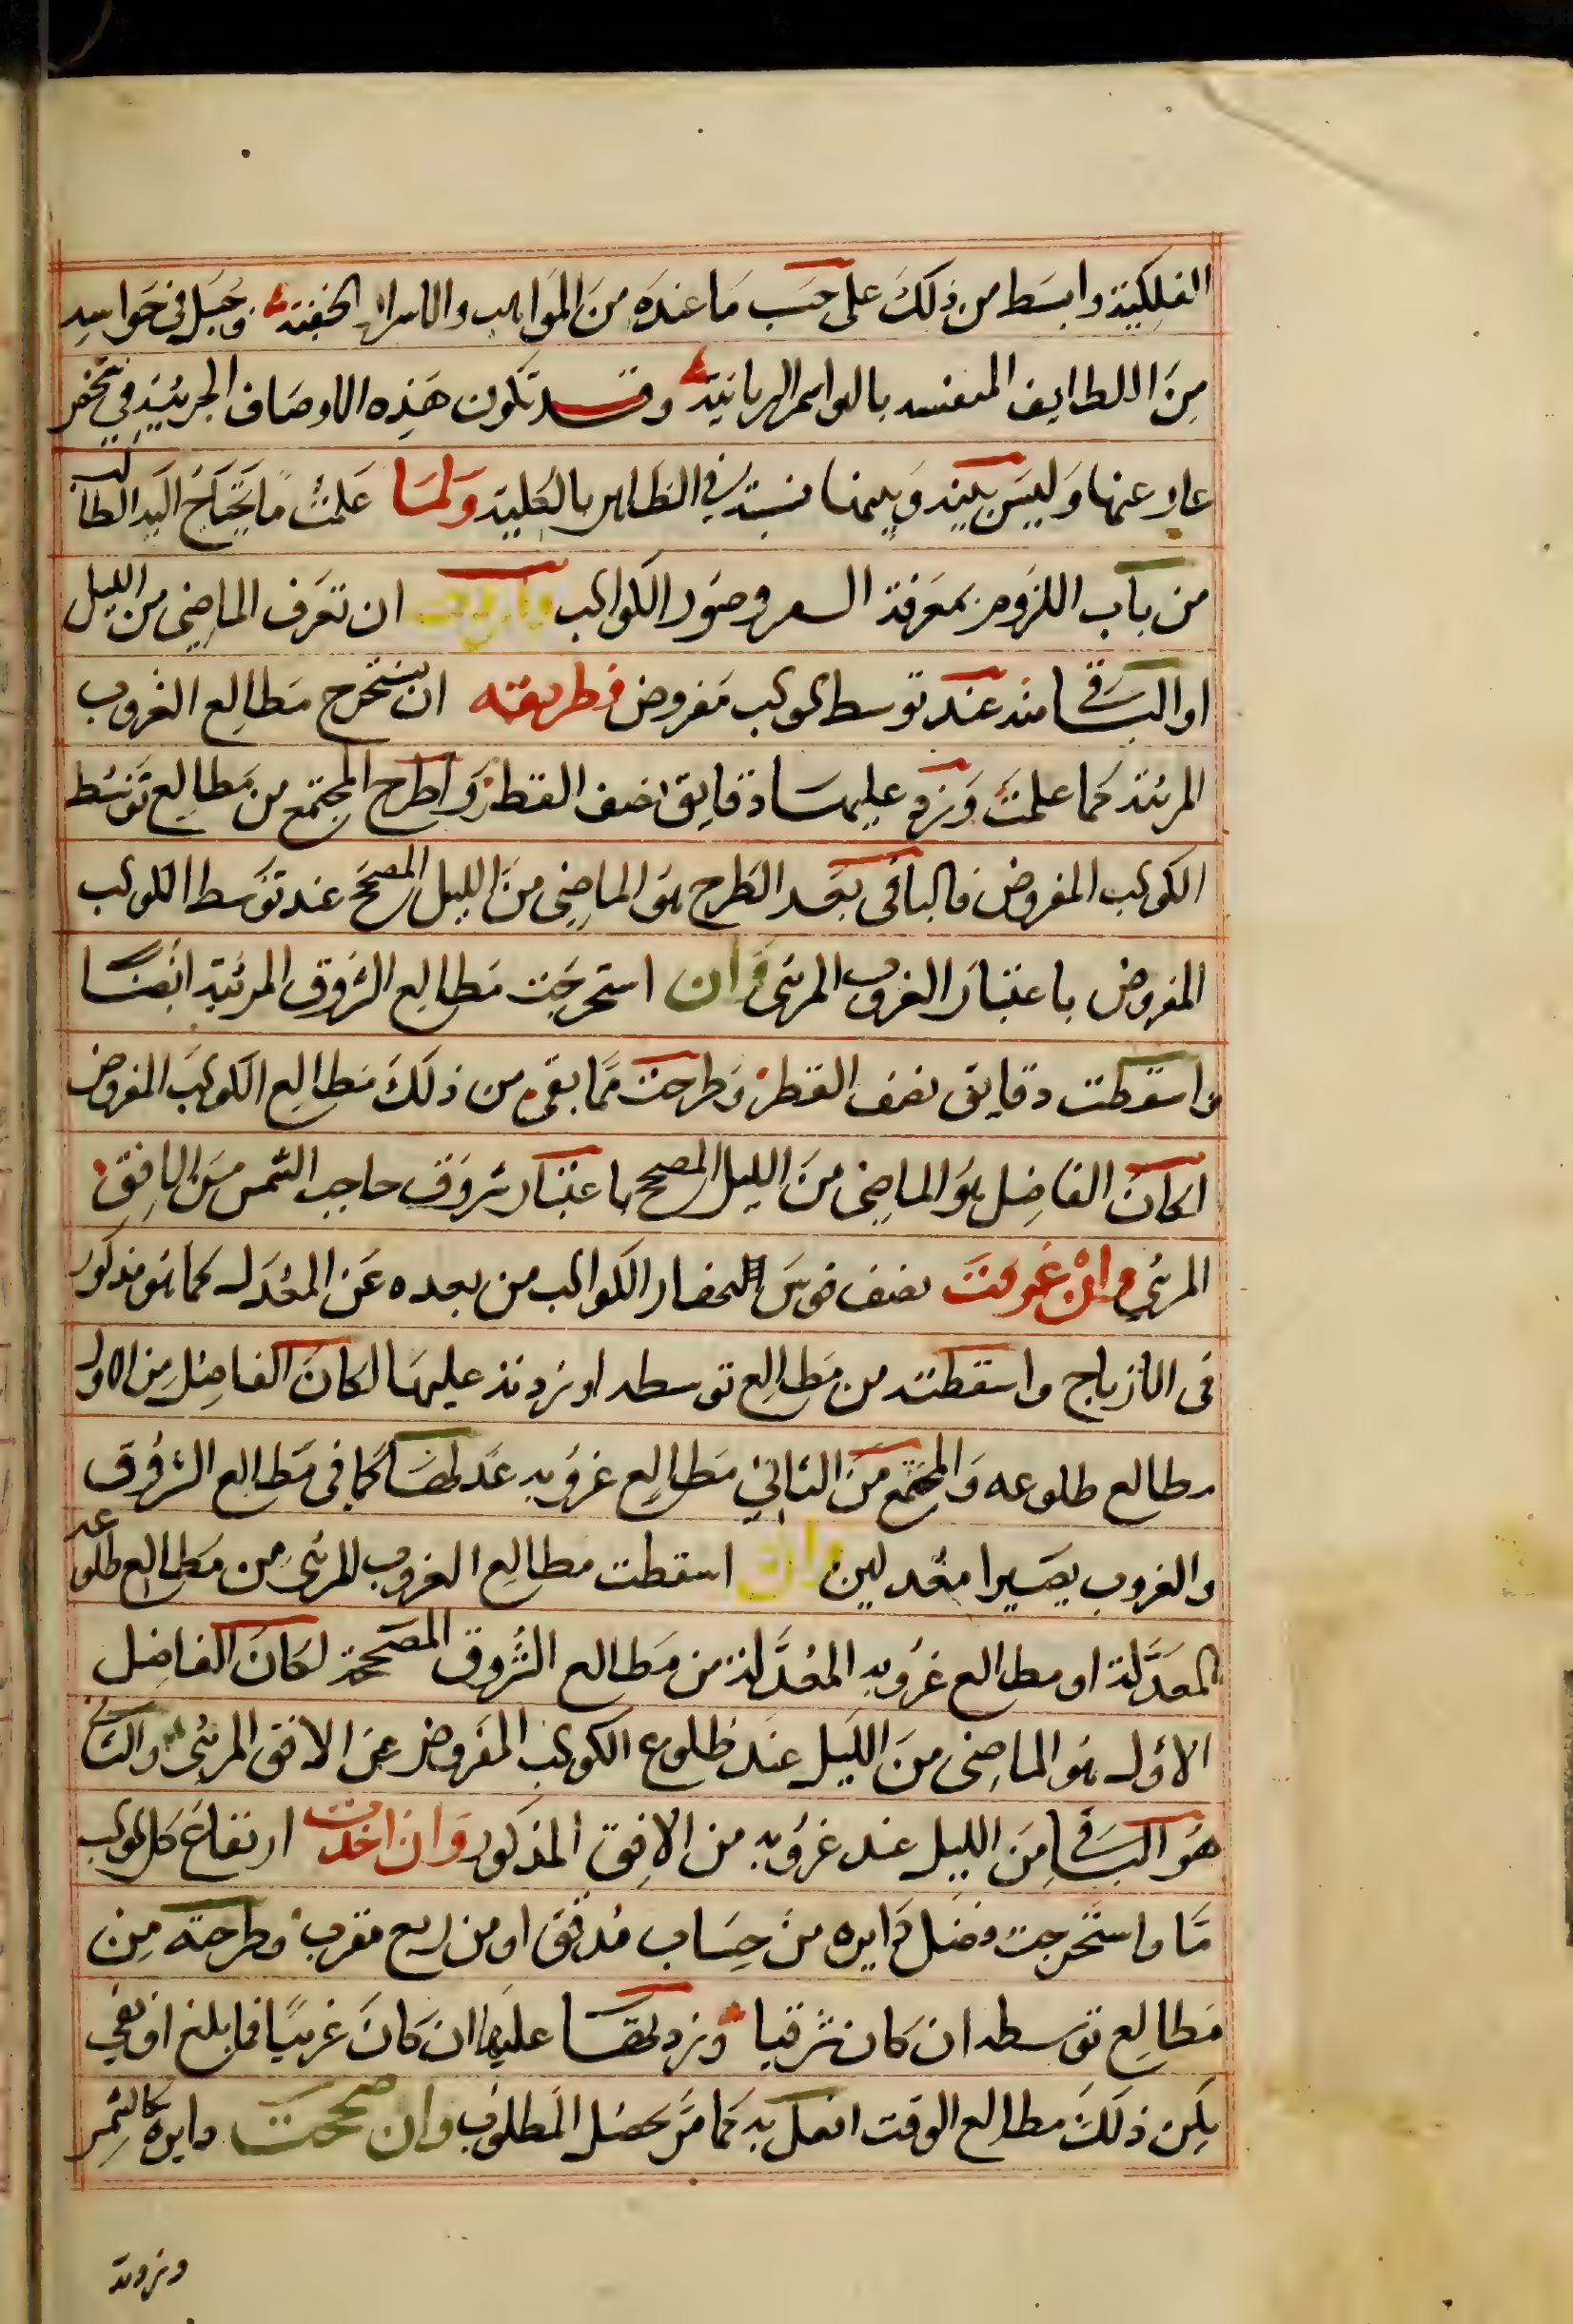 الفلكية وابسط من ذلك على حسب ما عنده من المواهب والاسرار الخفية وجبل في حواسه
من اللطايف المنفسه بالمواسم الربانية وقد تكون هذه الاوصاف الجزئية في شخص
عار عنها وليس بينه وبينها نسبة في الظاهر بالكلية ولما علمت ما يحتاج اليه الطالب
من باب اللزوم بمعرفة السعر وصور الكواكب واردت ان تعرف الماضى من الليل
او الباقى منه عند توسط كوكب مفروض فطريقته ان تستخرج مطالع الغروب
المرئية كما علمت وزد عليها دقايق نصف القطر واطرح المجتمع من مطالع توسط
الكوكب المفروض فالباقى بعد الطرح هو الماضى من الليل المصحح عند توسط الكوكب
المفروض باعتبار الغروب المرئى وان استخرجت مطالع الشروق المرئية ايضا
واسقطت دقايق نصف القطر وطرحت مما بقى من ذلك مطالع الكوكب المفروض
لكان الفاضل هو الماضى من الليل المصحح باعتبار شروق حاجب الشمس من الافق
المرئي وان عرفت نصف قوس الحضار الكواكب من بعده عن المعدل كما هو مذكور
فى الازياج واسقطته من مطالع توسطه او زدته عليها لكان الفاضل من الاول
مطالع طلوعه والمجتمع من الثاني مطالع غروبه عدلها كما فى مطالع الشروق
والغروب يصيرا معدلين وان اسقطت مطالع الغروب المرئى من مطالع طلوعه
المعدلة او مطالع غروبه المعدلة من مطالع الشروق المصححة لكان الفاضل
الاول هو الماضى من الليل عند طلوع الكوكب المفروض عن الافق المرئى والثانى
هو الباقى من الليل عند غروبه من الافق المذكور وان اخذت ارتفاع كل كوكب
ما واستخرجت فضل دايره من حساب مدقق او من ربع مقرب وطرحته من
مطالع توسطه ان كان شرقيا وزدتها عليها ان كان غربيا فما بلغ او بقي
يكن ذلك مطالع الوقت افعل به كما مر يحصل المطلوب وان صححت دايره كالشمس
وزدته